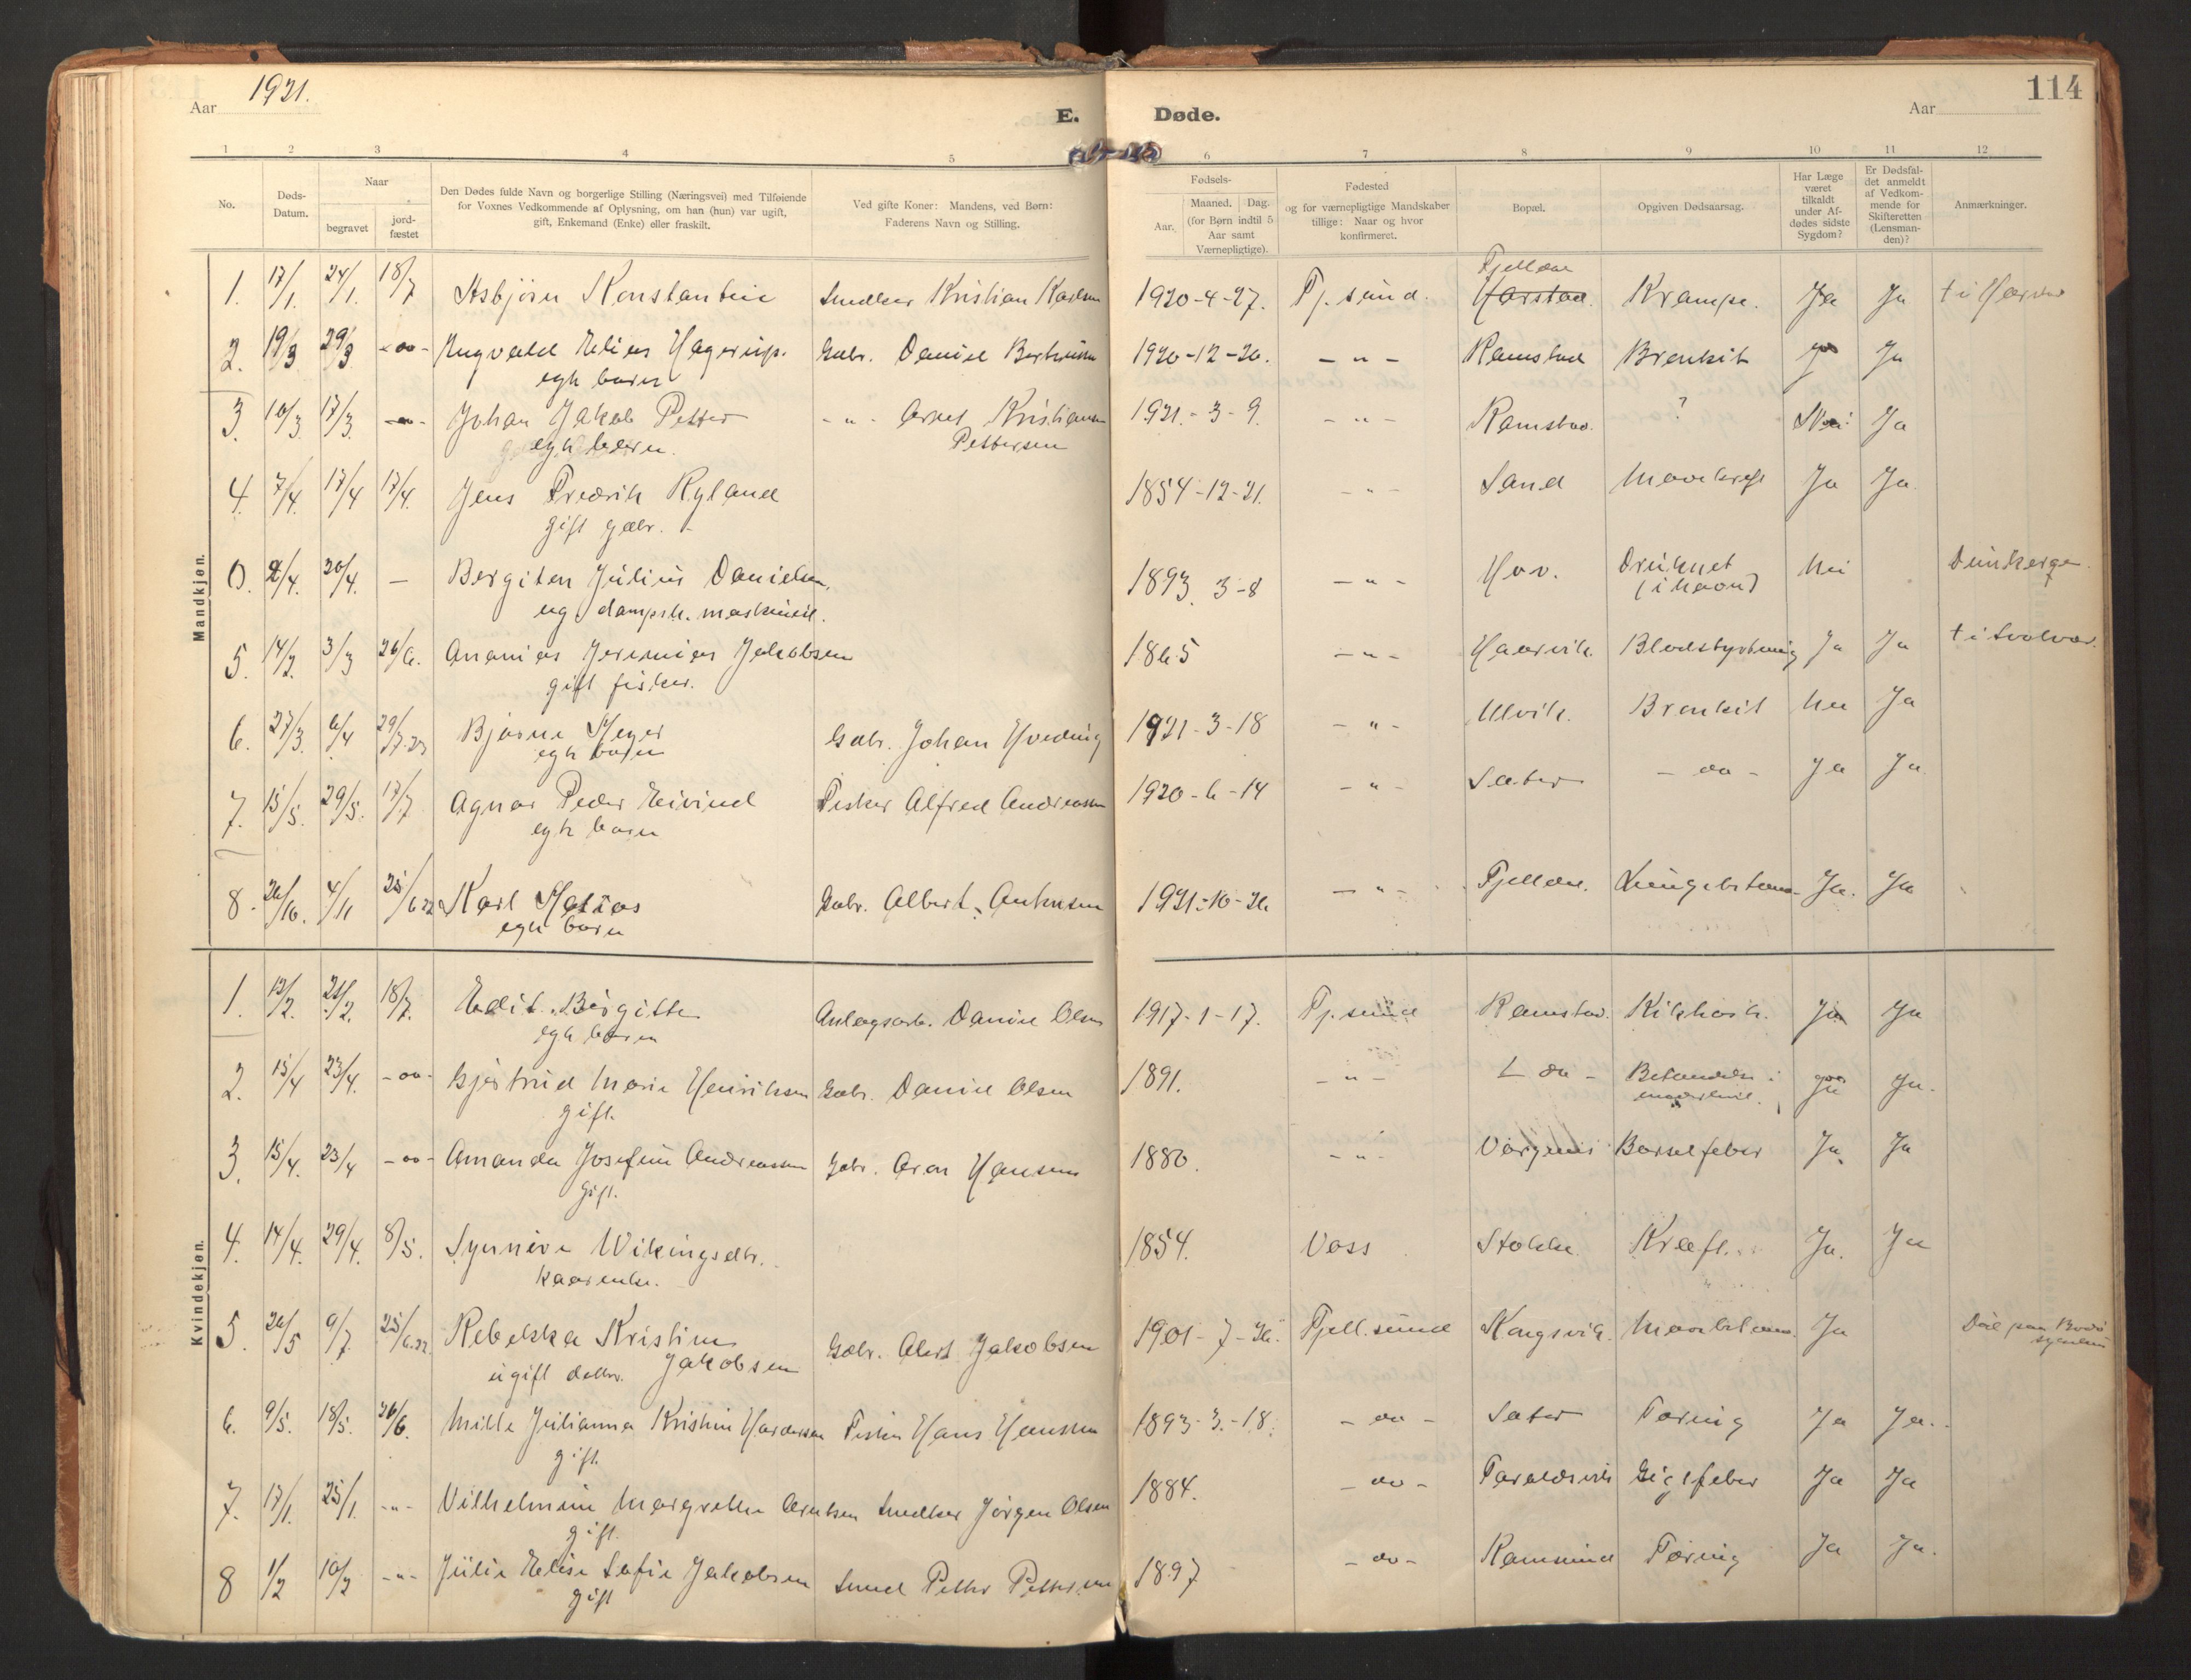 Aar 1921.
E. Døde.
Aar
114
1 2 3 4 5 6 7 8 9 10 11 12
No.
Døds-Datum.
Naar
begravet
jord-fæstet
Den Dødes fulde Navn og borgerlige Stilling (Næringsvei) med Tilføiende
for Voxnes Vedkommende af Oplysning, om han (hun) var ugift,
gift, Enkemand (Enke) eller fraskilt.
Ved gifte Koner: Mandens, ved Børn:
Faderens Navn og Stilling.
Fødsels-
Aar.
Maaned. Dag.
(for Børn indtil 5
Aar samt
Værnepligtige).
Fødested
og for værnepligtige Mandskaber
tillige: Naar og hvor
konfirmeret.
Bopæl.
Opgiven Dødsaarsag.
Har Læge
været
tilkaldt
under Af-
dødes sidste
Sygdom?
Er Dødsfal-
det anmeldt
af Vedkom-
mende for
Skifteretten
(Lensman-
den)?
Anmærkninger.
Mandkjøn.
1. 17/1. 24/1. 18/7 Asbjørn Konstantin Smedker Kristian Karlsen 1920-4-27. Fj.sund. Fjelldal Harstad. Krampe. Ja Ja † i Harstad
2. 19/3 29/3 -oo- Ingvald Elias Hagerup. Gabr. Daniel 1920-12-20. -"- Ramstad Bronkit Ja Ja
egte barn
3. 10/3 17/3. -oo- Johan Jakob Petter -"- Arnt Kristian 1921.-3-9. -"- Ramstad. ? Nei Ja
egte barn. Pettersen
4. 7/4. 17/4 17/4. Jens Fredrik Ryland 1854-12-21. -"- Sand Mavekræft Ja Ja
gift gabr.
0. 2/4. 20/4. - Bergiton Julius Danielsen. 1893. 3-8 -"- Hov. Druknet Nei Dunkerque.
ug dampsk. maskinist. (i havn)
5. 14/2. 3/3 26/6. Ananias Jeremias Jakobsen 1865 -"- Haarvik. Blodstyrtning Ja Ja † i Svolvær.
gift fisker.
6. 27/3. 6/4 29/7-23 Bjarne Meyer Gabr. Johan Hveding 1921-3-18 -"- Ulvik. Bronkit Nei Ja
egte barn
7. 15/5. 29/5. 17/7 Agnar Peder Eivind Fisker Alfred Andreassen 1920-6-14 -"- Sæter -do- Ja Ja
egte barn
8. 26/10. 4/11 25/6 22 Karl Matias Gabr. Albert Antonsen 1921-10-26 -"- Fjelldal. Ja. Ja
egte barn
Kvindekjøn.
1. 12/2. 21/2. 18/7. Edit Birgitte Anlægsarb. Daniel Olsen 1917-1-17. Fj.sund Ramstad. Kikhost. Ja Ja
egte barn
2. 15/4 23/4. -oo- Gjertrud Marie Henriksen Gabr. Daniel Olsen 1891. -"- - do - Betændelse i Ja Ja.
gift.
3. 15/4. 23/4 -oo- Amanda Josefine Andreassen Gabr. Aron Hansen 1880. -"- Barselfeber Ja. Ja
gift.
4. 14/4. 29/4. 8/5. Synnøve Wikingsdtr. 1854. Voss Stokke Kræft. Ja. Ja
kaarenke.
5. 26/5 9/7. 25/6.22 Rebekka Kristine Gabr. Albert Jakobsen 1901-7-26. Fjell.sund Kongsvik. Ja Død paa Bodø
ugift datter. Jakobsen sykehus
6. 9/5. 18/5. 26/6. Mille Julianna Kristine Fisker Hans Hansen 1893-3.-18. -do- Sæter Tæring Ja Ja.
gift
7. 17/1. 25/1. -"- Vilhelmine Margrethe Arntsen Smedker Jørgen Olsen 1884. -do- Taraldsvik Gigtfeber Ja Ja
gift.
8 1/2 10/2 -"- Julie Elise Sofie Jakobsen Smed Petter Pettersen 1897 -do- Ramsund Tæring Ja Ja.
gift